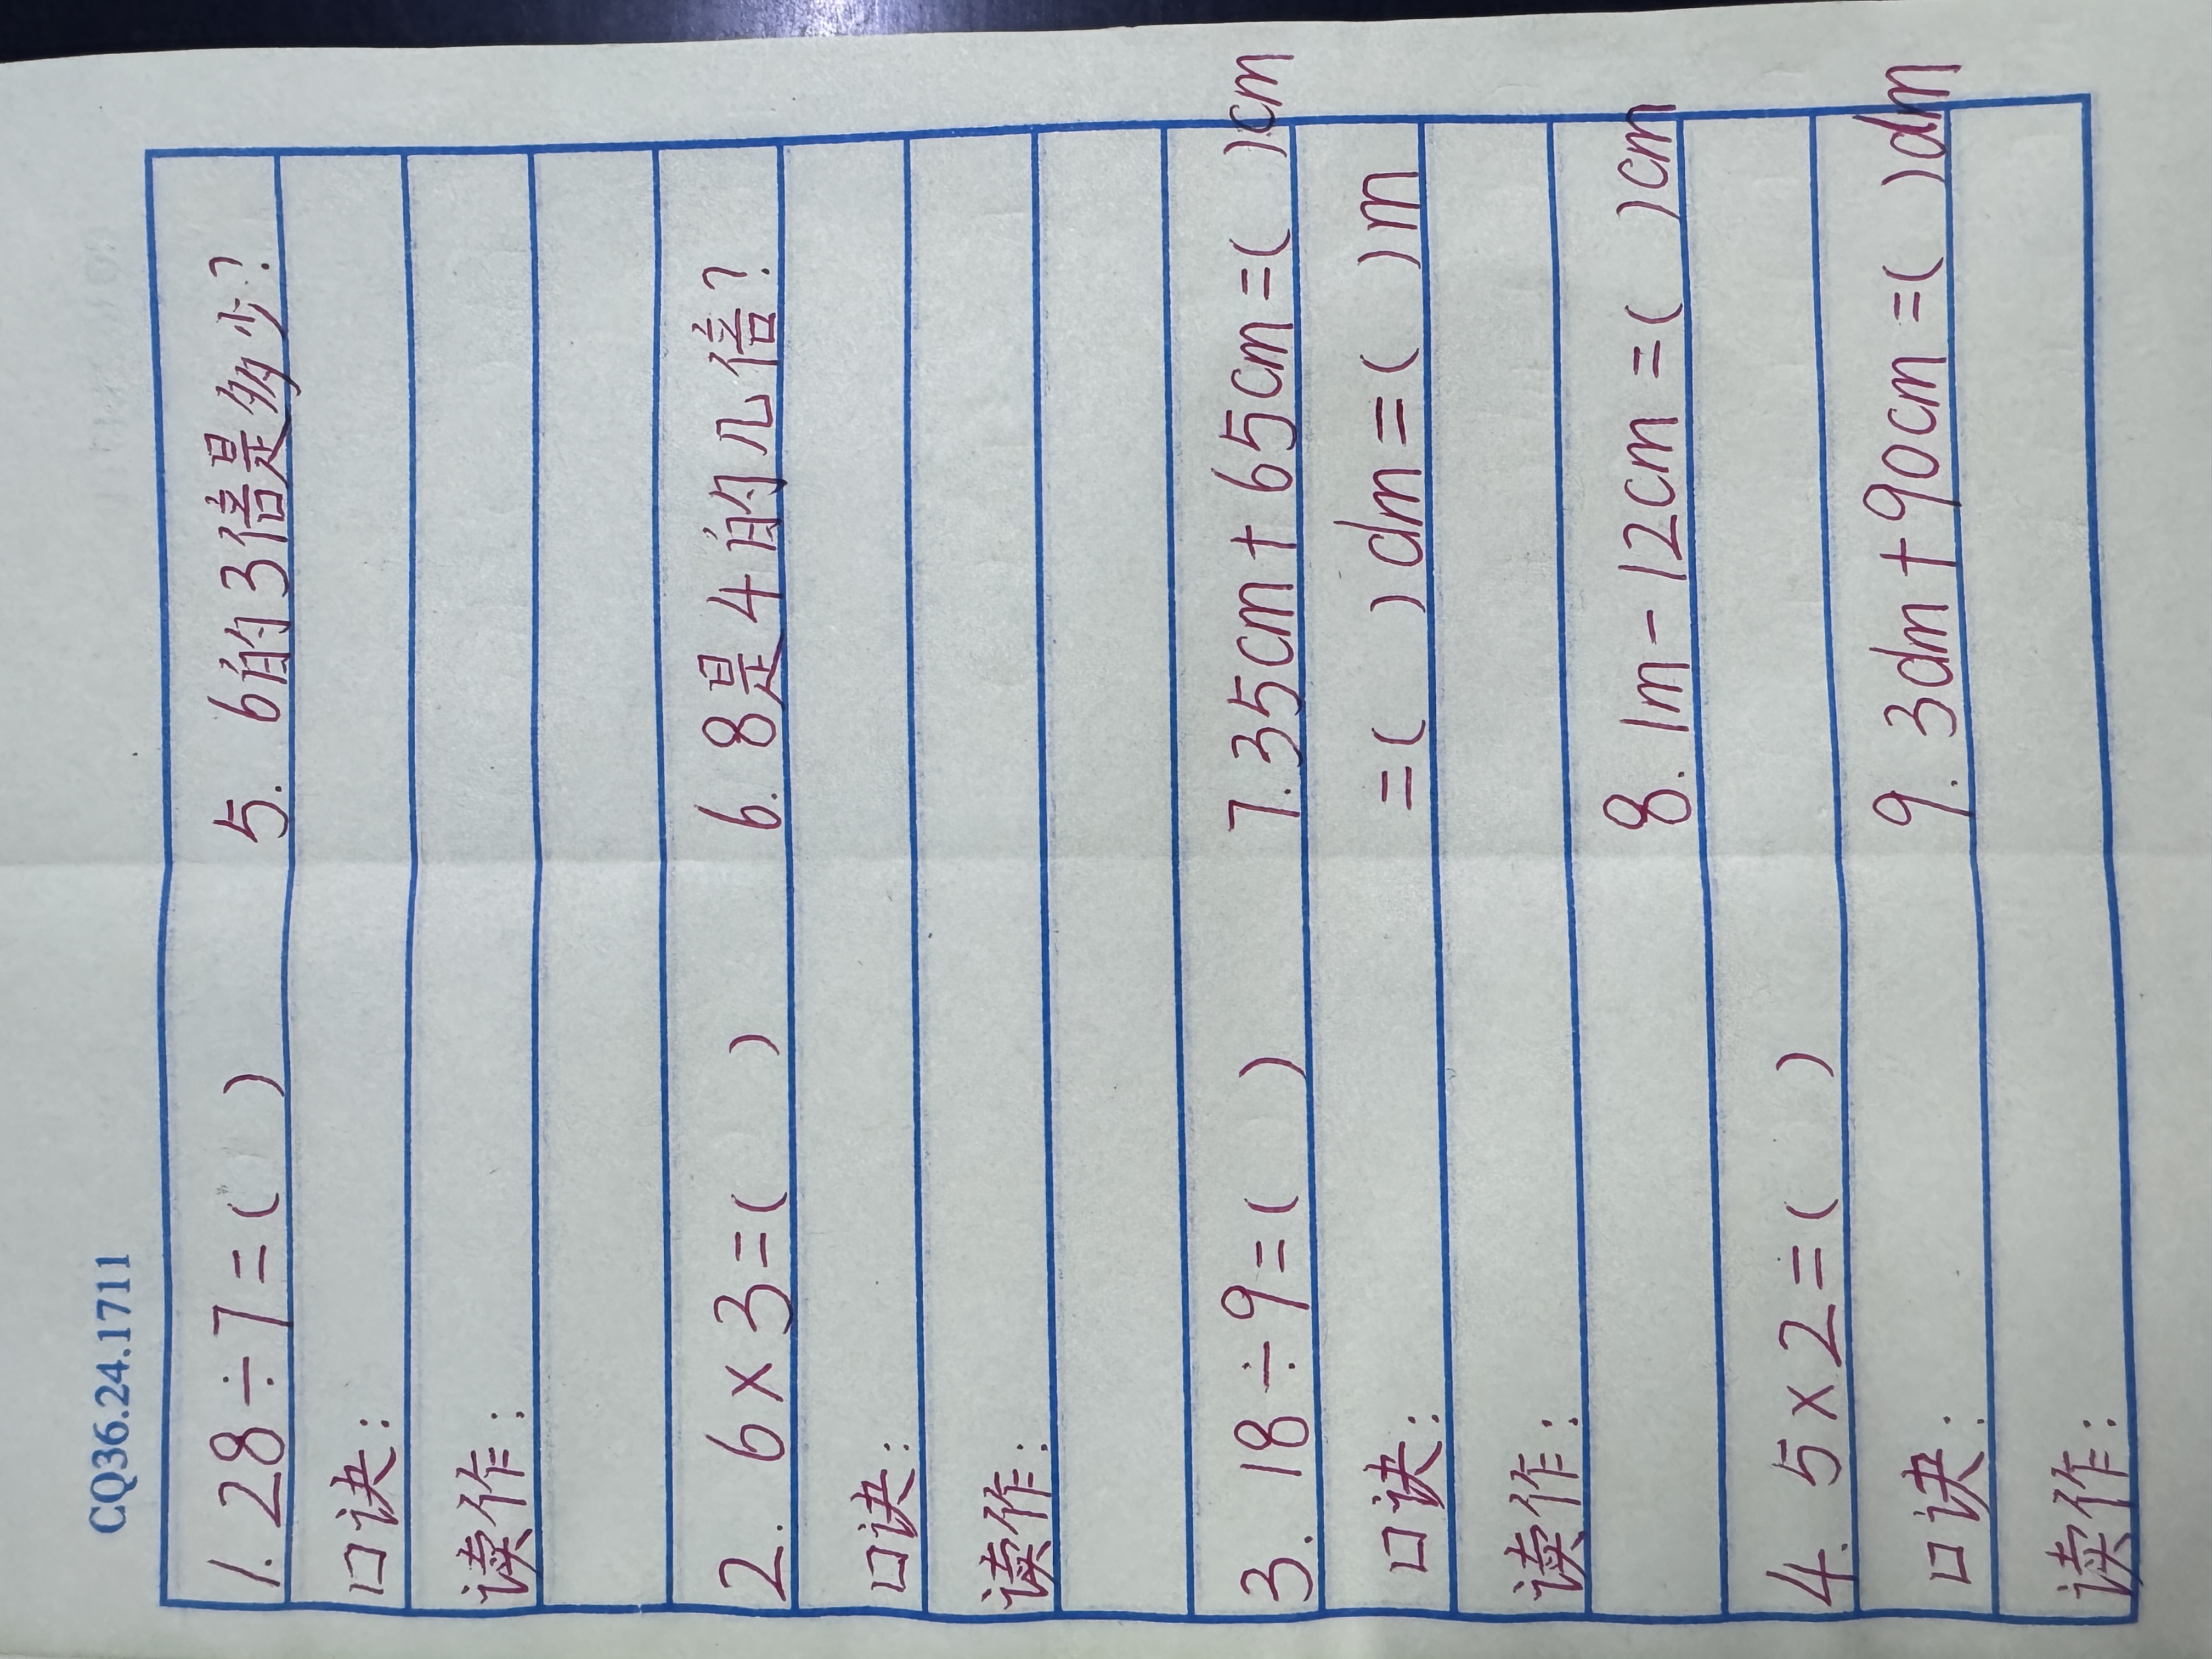 CQ36.24.1711
1. 28÷7=(  )
口诀:
读作:
2. 6×3=(  )
口诀:
读作:
3. 18÷9=(  )
口诀:
读作:
4. 5×2=(  )
口诀:
读作:
5. 6的3倍是多少?
6. 8是4的几倍?
7. 35cm+65cm=(  )cm
=(  )dm=(  )m
8. 1m-12cm=(  )cm
9. 3dm+90cm=(  )dm